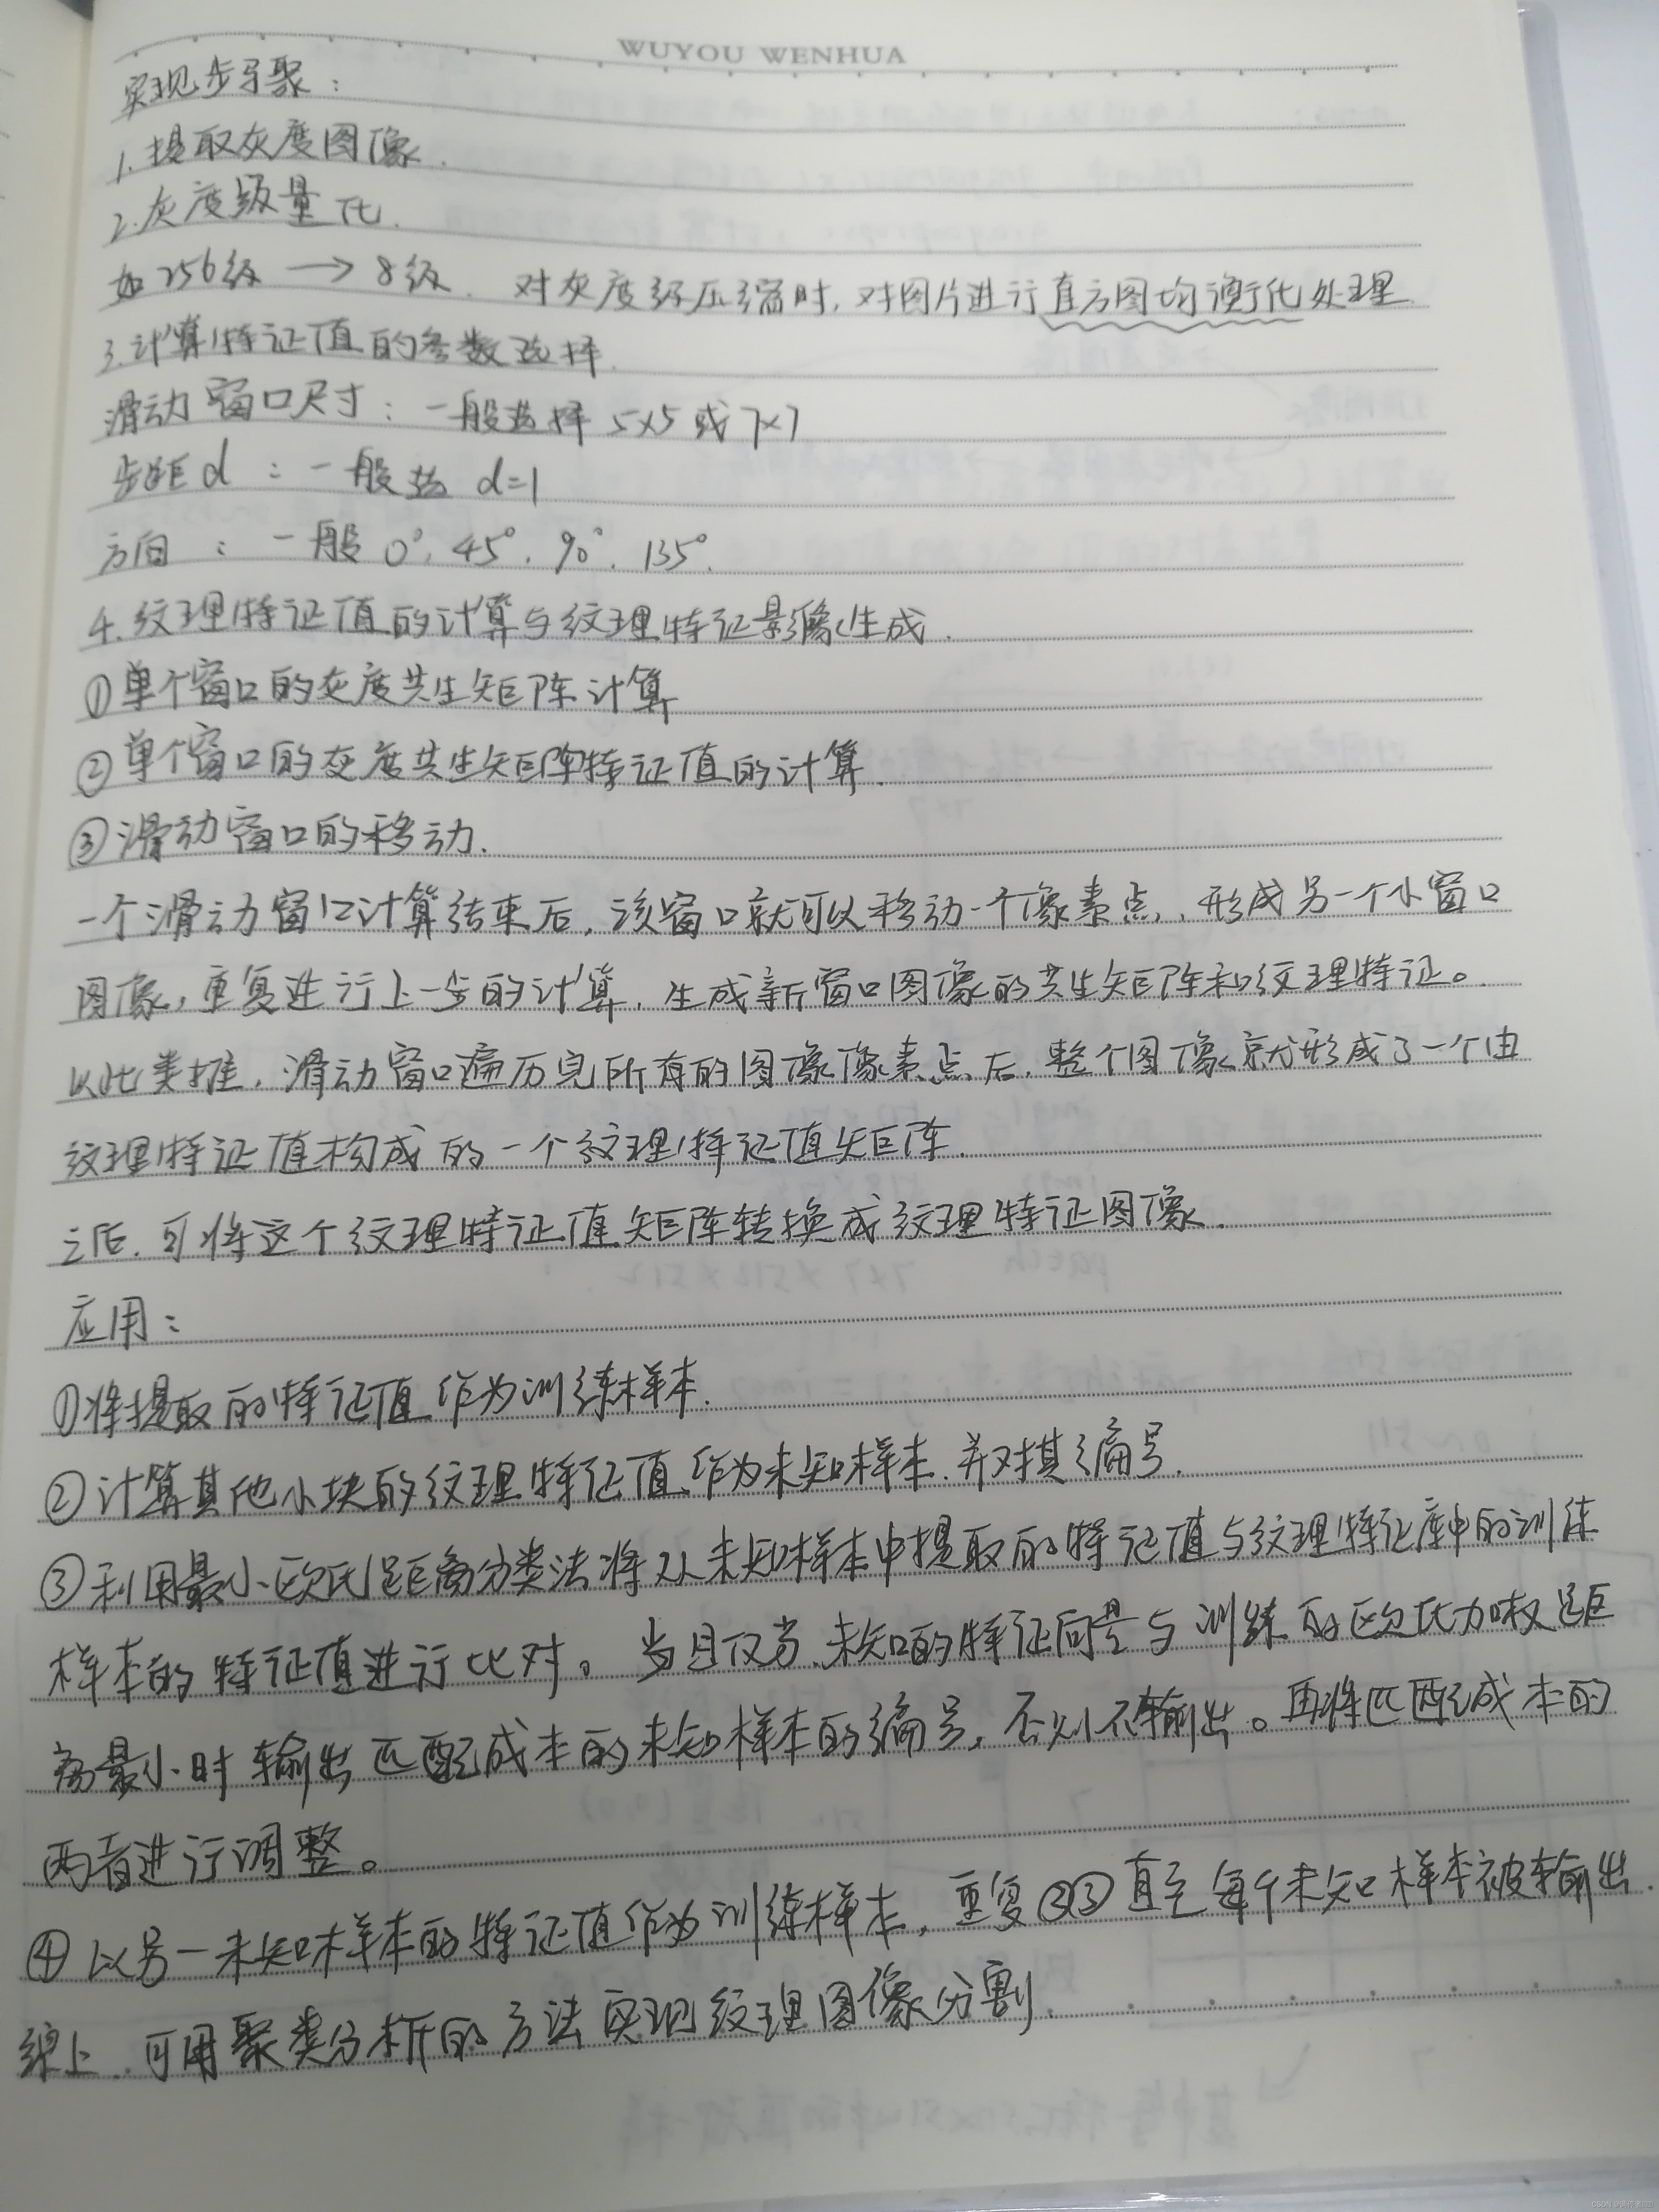 WUYOU WENHUA
实现步骤：
1.提取灰度图像.
2.灰度级量化.
如256级 → 8级. 对灰度级压缩时,对图片进行直方图均衡化处理
3.计算特征值的参数选择.
滑动窗口尺寸：一般选择 5×5 或 7×7
步距d ：一般选 d=1
方向 ：一般 0°, 45°, 90°, 135°.
4.纹理特征值的计算与纹理特征影像生成.
①单个窗口的灰度共生矩阵计算
②单个窗口的灰度共生矩阵特征值的计算.
③滑动窗口的移动.
一个滑动窗口计算结束后,该窗口就可以移动一个像素点,形成另一个小窗口
图像,重复进行上一步的计算,生成新窗口图像的共生矩阵和纹理特征。
以此类推,滑动窗口遍历完所有的图像像素点后,整个图像就形成了一个由
纹理特征值构成的一个纹理特征值矩阵.
之后,可将这个纹理特征值矩阵转换成纹理特征图像.
应用：
①将提取的特征值作为训练样本.
②计算其他小块的纹理特征值,作为未知样本,并对其编号.
③利用最小欧氏距离分类法将从未知样本中提取的特征值与纹理特征库中的训练
样本的特征值进行比对。当且仅当,未知的特征向量与训练的欧氏加权距
离最小时输出匹配成本的未知样本的编号,否则不输出。再将匹配成本的
两者进行调整。
④以另一未知样本的特征值作为训练样本,重复②③直至每个未知样本被输出.
综上,可用聚类分析的方法实现纹理图像分割.